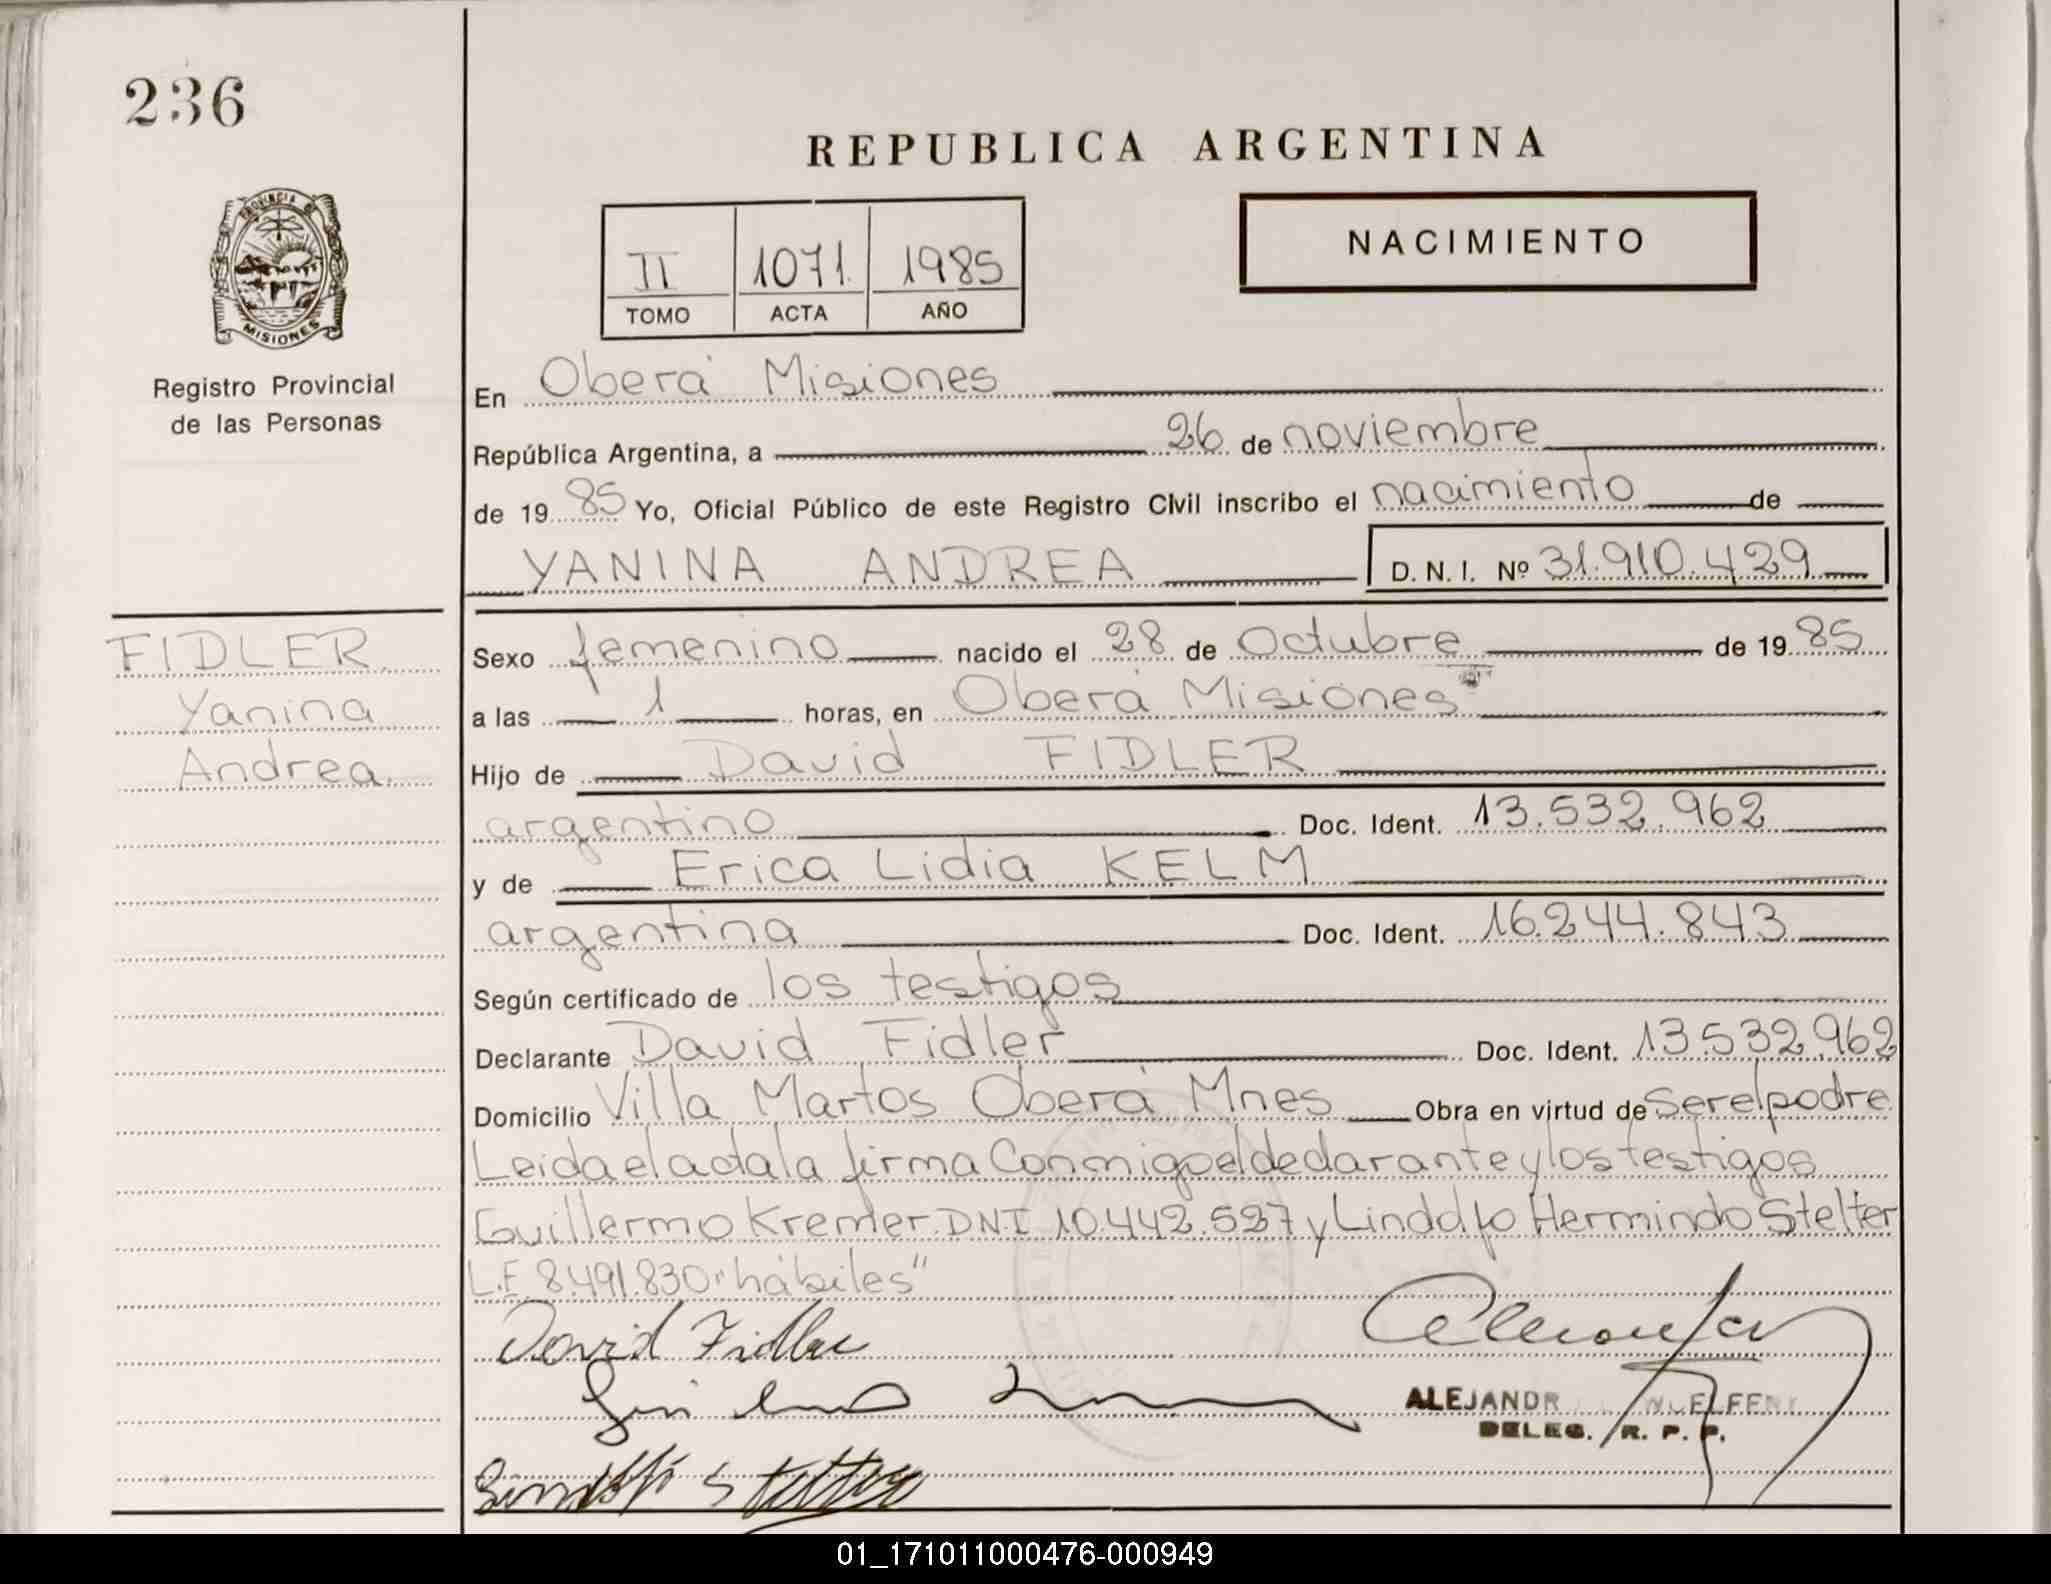 236
REPUBLICA ARGENTINA
PROVINCIA DE
MISIONES
Registro Provincial
de las Personas
II 1071. 1985
TOMO ACTA AÑO
NACIMIENTO
En Oberá Misiones
República Argentina, a 26 de noviembre
de 19 85 Yo, Oficial Público de este Registro Civil inscribo el nacimiento de
YANINA ANDREA D. N. I. Nº 31.910.429
FIDLER
Yanina
Andrea
Sexo femenino nacido el 28 de Octubre de 19 85
a las 1 horas, en Oberá Misiones
Hijo de David FIDLER
argentino Doc. Ident. 13.532.962
y de Erica Lidia KELM
argentina Doc. Ident. 16.244.843
Según certificado de los testigos
Declarante David Fidler Doc. Ident. 13.532.962
Domicilio Villa Martos Oberá Mnes Obra en virtud de Ser el padre
Leida el acta la firma Conmigo el declarante y los testigos
Guillermo Kremer DNI 10.442.527 y Lindolfo Hermindo Stelter
L.E 8.491.830 "hábiles"
David Fidler
ALEJANDR
DELEG. R. P. P.
Stelter
01_171011000476-000949